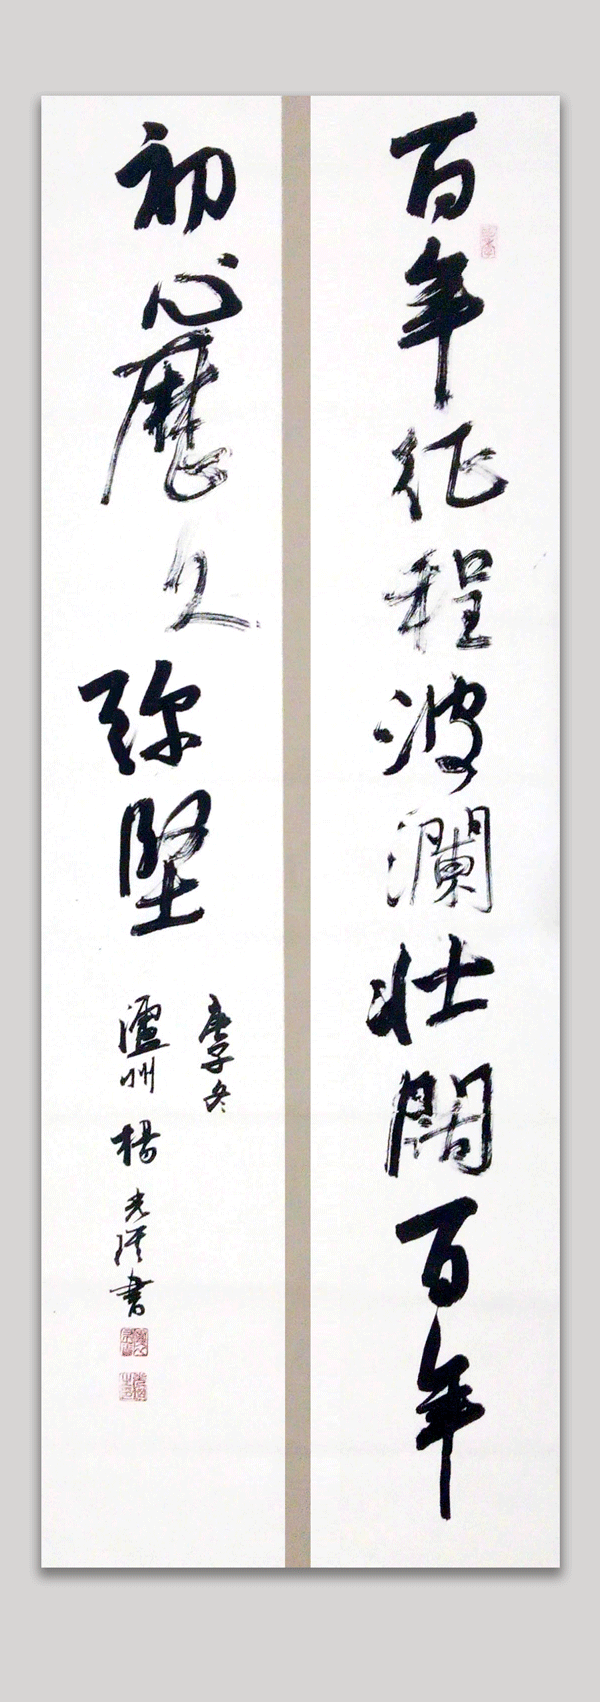 百年征程波瀾壮闊百年
初心歷久弥堅
庚子冬
瀘州楊光漢書